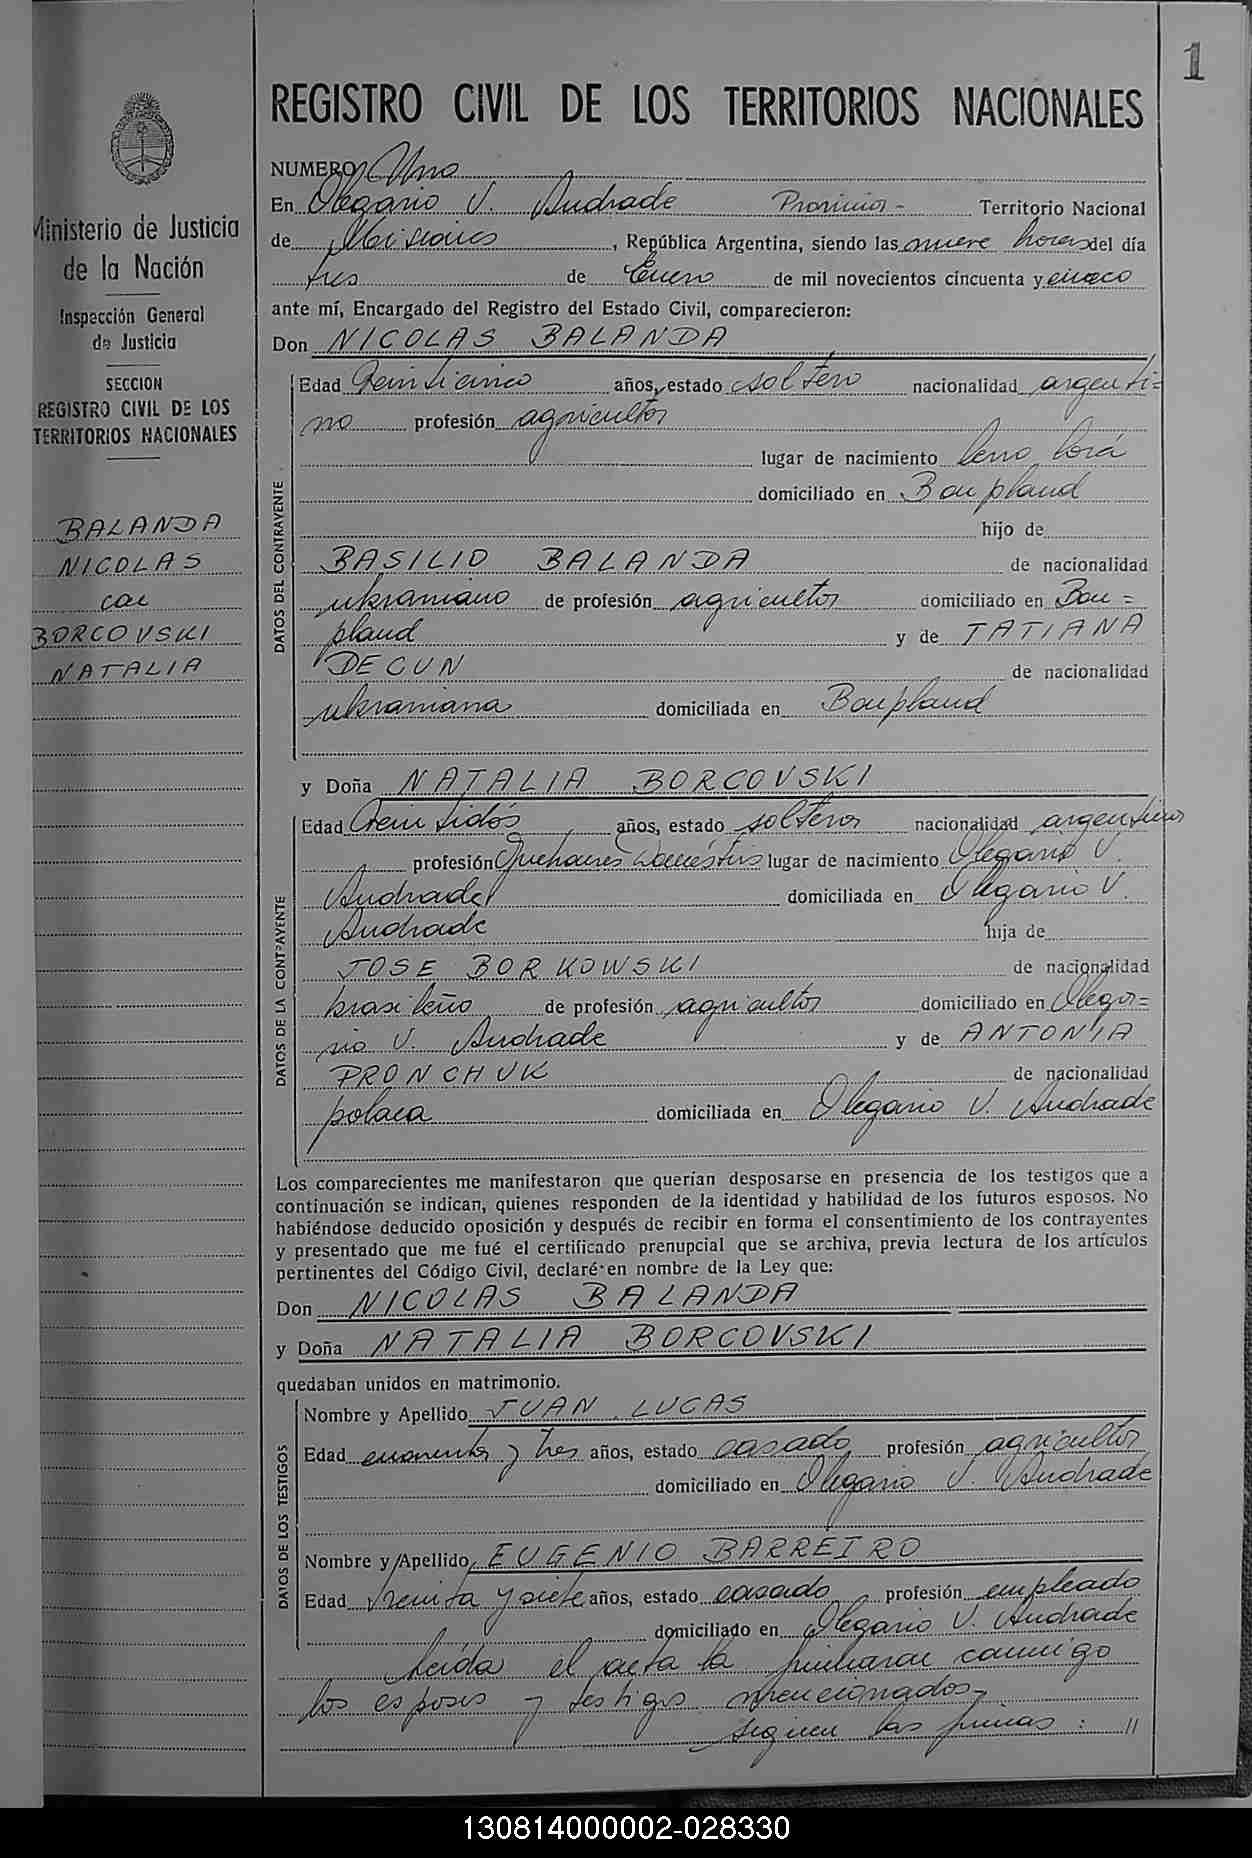 1
REGISTRO CIVIL DE LOS TERRITORIOS NACIONALES
Ministerio de Justicia
de la Nación
Inspección General
de Justicia
SECCION
REGISTRO CIVIL DE LOS
TERRITORIOS NACIONALES
BALANDA
NICOLAS
con
BORCOVSKI
NATALIA
NUMERO Uno
En Olegario V. Andrade Provincia - Territorio Nacional
de Misiones, República Argentina, siendo las nueve horas del día
tres de Enero de mil novecientos cincuenta y cinco
ante mí, Encargado del Registro del Estado Civil, comparecieron:
Don NICOLAS BALANDA
DATOS DEL CONTRAYENTE
Edad Veinticinco años, estado soltero nacionalidad argenti=
no profesión agricultor
lugar de nacimiento Cerro Corá
domiciliado en Bonpland
hijo de
BASILIO BALANDA de nacionalidad
ukraniano de profesión agricultor domiciliado en Bon=
pland y de TATIANA
DECUN de nacionalidad
ukraniana domiciliada en Bonpland
y Doña NATALIA BORCOVSKI
DATOS DE LA CONTRAYENTE
Edad Veintidós años, estado soltera nacionalidad argentina
profesión Quehaceres Domésticos lugar de nacimiento Olegario V.
Andrade domiciliada en Olegario V.
Andrade hija de
JOSE BORKOWSKI de nacionalidad
brasileño de profesión agricultor domiciliado en Olega=
rio V. Andrade y de ANTONIA
PRONCHUK de nacionalidad
polaca domiciliada en Olegario V. Andrade
Los comparecientes me manifestaron que querían desposarse en presencia de los testigos que a
continuación se indican, quienes responden de la identidad y habilidad de los futuros esposos. No
habiéndose deducido oposición y después de recibir en forma el consentimiento de los contrayentes
y presentado que me fué el certificado prenupcial que se archiva, previa lectura de los artículos
pertinentes del Código Civil, declaré en nombre de la Ley que:
Don NICOLAS BALANDA
y Doña NATALIA BORCOVSKI
quedaban unidos en matrimonio.
DATOS DE LOS TESTIGOS
Nombre y Apellido JUAN LUCAS
Edad cuarenta y tres años, estado casado profesión agricultor
domiciliado en Olegario V. Andrade
Nombre y Apellido EUGENIO BARREIRO
Edad treinta y siete años, estado casado profesión empleado
domiciliado en Olegario V. Andrade
Leída el acta la firmaron conmigo
los esposos y testigos mencionados,
siguen las firmas: //
130814000002-028330